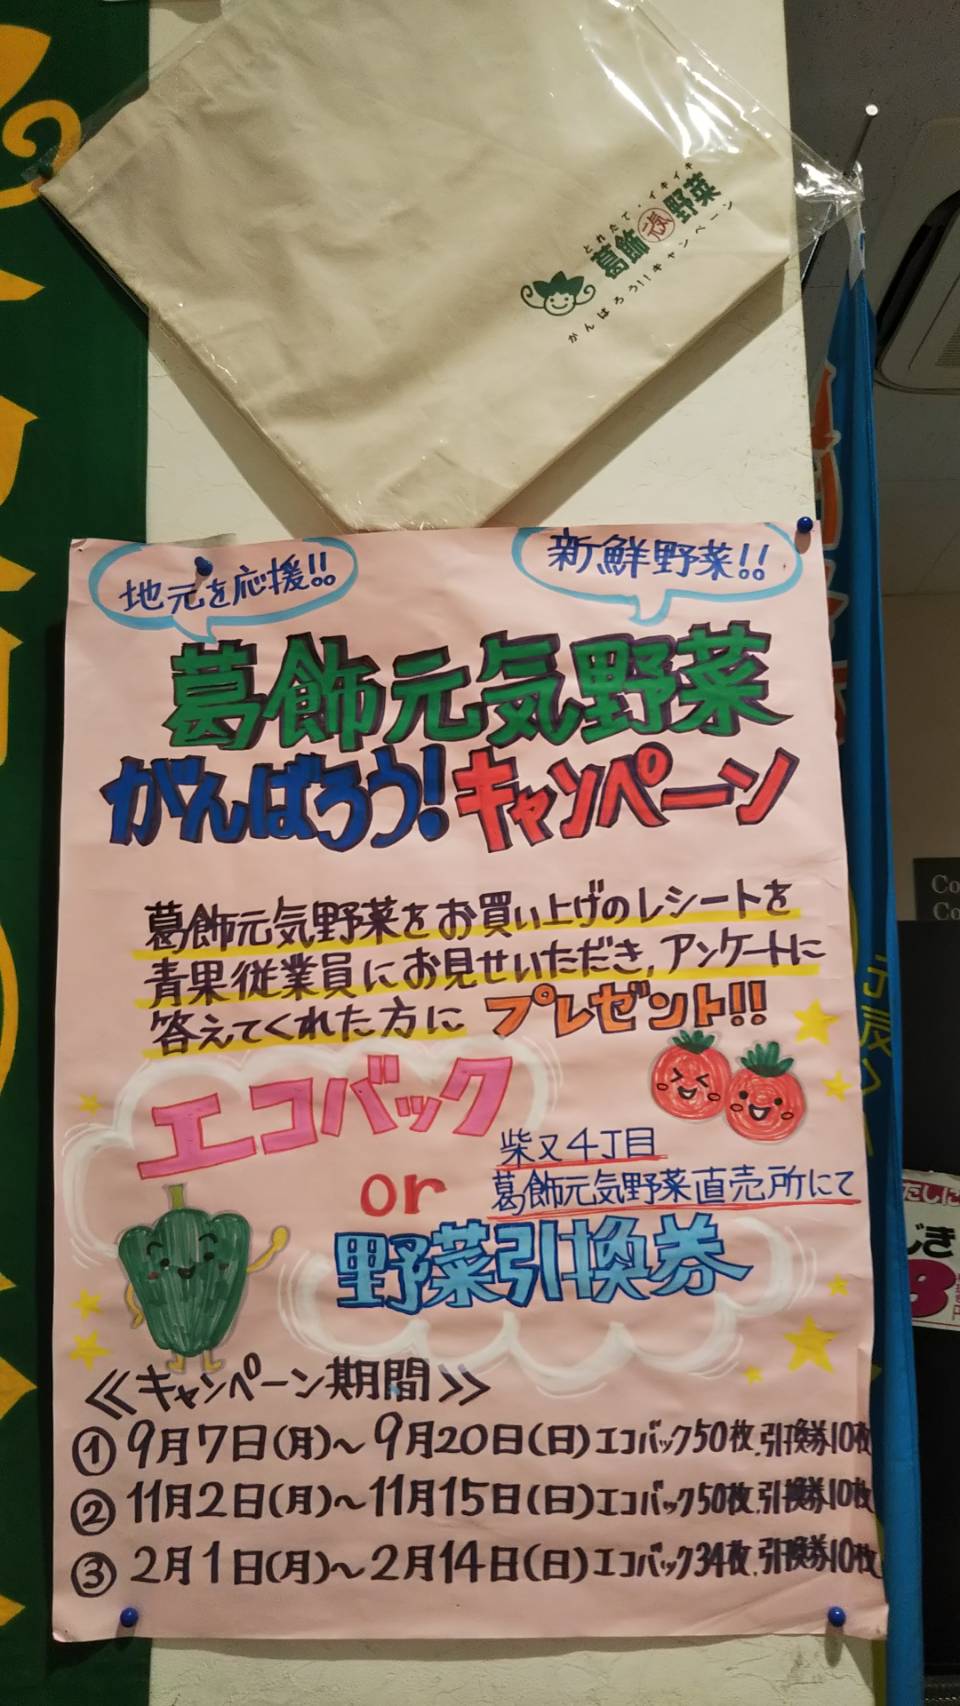 とれたて・イキイキ
葛飾元気野菜
がんばろう!!キャンペーン
地元を応援!!
新鮮野菜!!
葛飾元気野菜
がんばろう!キャンペーン
葛飾元気野菜をお買い上げのレシートを
青果従業員にお見せいただき,アンケートに
答えてくれた方に プレゼント!!
エコバック
or
柴又4丁目
葛飾元気野菜直売所にて
野菜引換券
≪キャンペーン期間≫
①9月7日(月)～9月20日(日)エコバック50枚.引換券10枚
②11月2日(月)～11月15日(日)エコバック50枚.引換券10枚
③2月1日(月)～2月14日(日)エコバック34枚.引換券10枚
Co
Co